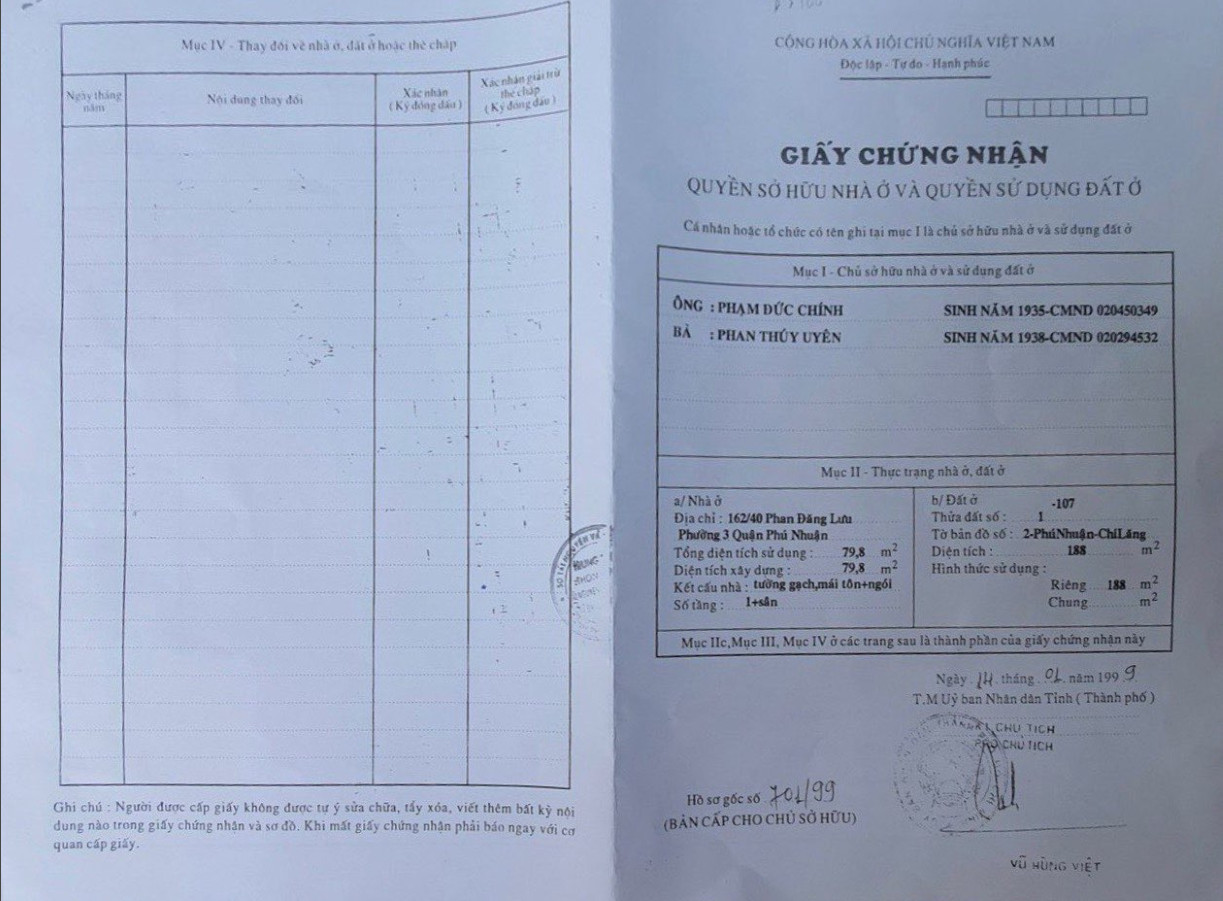 Mục IV - Thay đổi về nhà ở, đất ở hoặc thế chấp
Ngày tháng năm
Nội dung thay đổi
Xác nhận
( Ký đóng dấu )
Xác nhận giải trừ
thế chấp
( Ký đóng dấu )
Ghi chú : Người được cấp giấy không được tự ý sửa chữa, tẩy xóa, viết thêm bất kỳ nội
dung nào trong giấy chứng nhận và sơ đồ. Khi mất giấy chứng nhận phải báo ngay với cơ
quan cấp giấy.
CỘNG HÒA XÃ HỘI CHỦ NGHĨA VIỆT NAM
Độc lập - Tự do - Hạnh phúc
GIẤY CHỨNG NHẬN
QUYỀN SỞ HỮU NHÀ Ở VÀ QUYỀN SỬ DỤNG ĐẤT Ở
Cá nhân hoặc tổ chức có tên ghi tại mục I là chủ sở hữu nhà ở và sử dụng đất ở
Mục I - Chủ sở hữu nhà ở và sử dụng đất ở
ÔNG : PHẠM ĐỨC CHÍNH SINH NĂM 1935-CMND 020450349
BÀ : PHAN THÚY UYÊN SINH NĂM 1938-CMND 020294532
Mục II - Thực trạng nhà ở, đất ở
a/ Nhà ở
Địa chỉ : 162/40 Phan Đăng Lưu
Phường 3 Quận Phú Nhuận
Tổng diện tích sử dụng : 79,8 m2
Diện tích xây dựng : 79,8 m2
Kết cấu nhà : tường gạch,mái tôn+ngói
Số tầng : 1+sân
b/ Đất ở -107
Thửa đất số : 1
Tờ bản đồ số : 2-PhúNhuận-ChíLăng
Diện tích : 188 m2
Hình thức sử dụng :
Riêng 188 m2
Chung m2
Mục IIc,Mục III, Mục IV ở các trang sau là thành phần của giấy chứng nhận này
Ngày 14 tháng 01 năm 1999
T.M Uỷ ban Nhân dân Tỉnh ( Thành phố )
CHỦ TỊCH
PHÓ CHỦ TỊCH
Hồ sơ gốc số 701/99
(BẢN CẤP CHO CHỦ SỞ HỮU)
VŨ HÙNG VIỆT